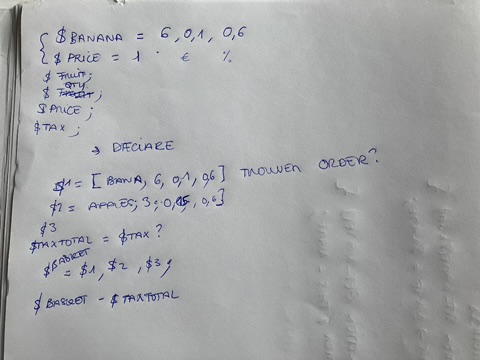 { $BANANA = 6, 0,1, 0,6
{ $PRICE = 1 € %
$ FRUIT;
$ QTY;
$PRICE;
$TAX;
→ DECLARE
$1 = [BANA, 6, 0,1, 0,6] ORDER?
$2 = APPLES; 3; 0,15, 0,6]
$3
$TAXTOTAL = $TAX?
$BASKET = $1, $2, $3;
$BASKET - $TAXTOTAL